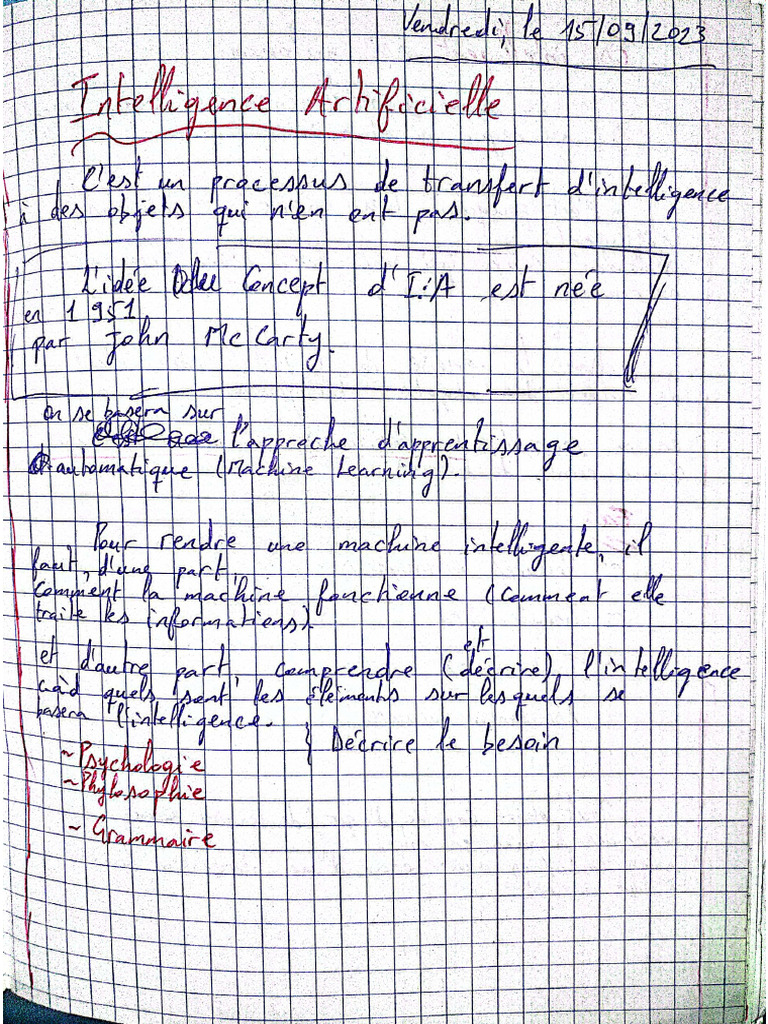 Vendredi, le 15/09/2023
Intelligence Artificielle
C'est un processus de transfert d'intelligence
à des objets qui n'en ont pas.
L'idée Du Concept d'I.A est née
en 1951
par John Mc Carty.
On se basera sur
l'approche d'apprentissage
automatique (Machine Learning).
Pour rendre une machine intelligente, il
faut, d'une part,
comment la machine fonctionne (comment elle
traite les informations)
et
et d'autre part, comprendre (décrire) l'intelligence
càd quels sont les éléments sur lesquels se
basera l'intelligence.
} Décrire le besoin
~ Psychologie
~ Phylosophie
~ Grammaire